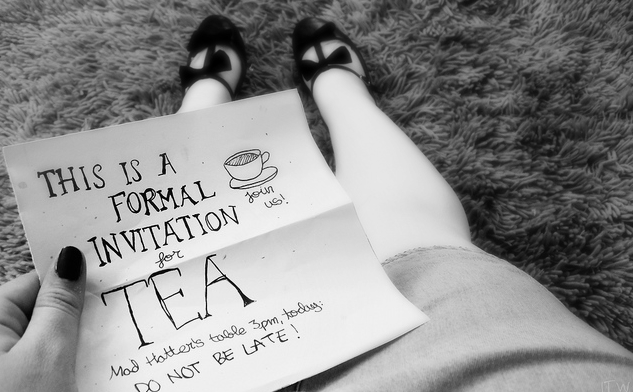 THIS IS A
FORMAL
INVITATION
for
TEA
join
us!
Mad Hatter's table 3pm, today:
DO NOT BE LATE!